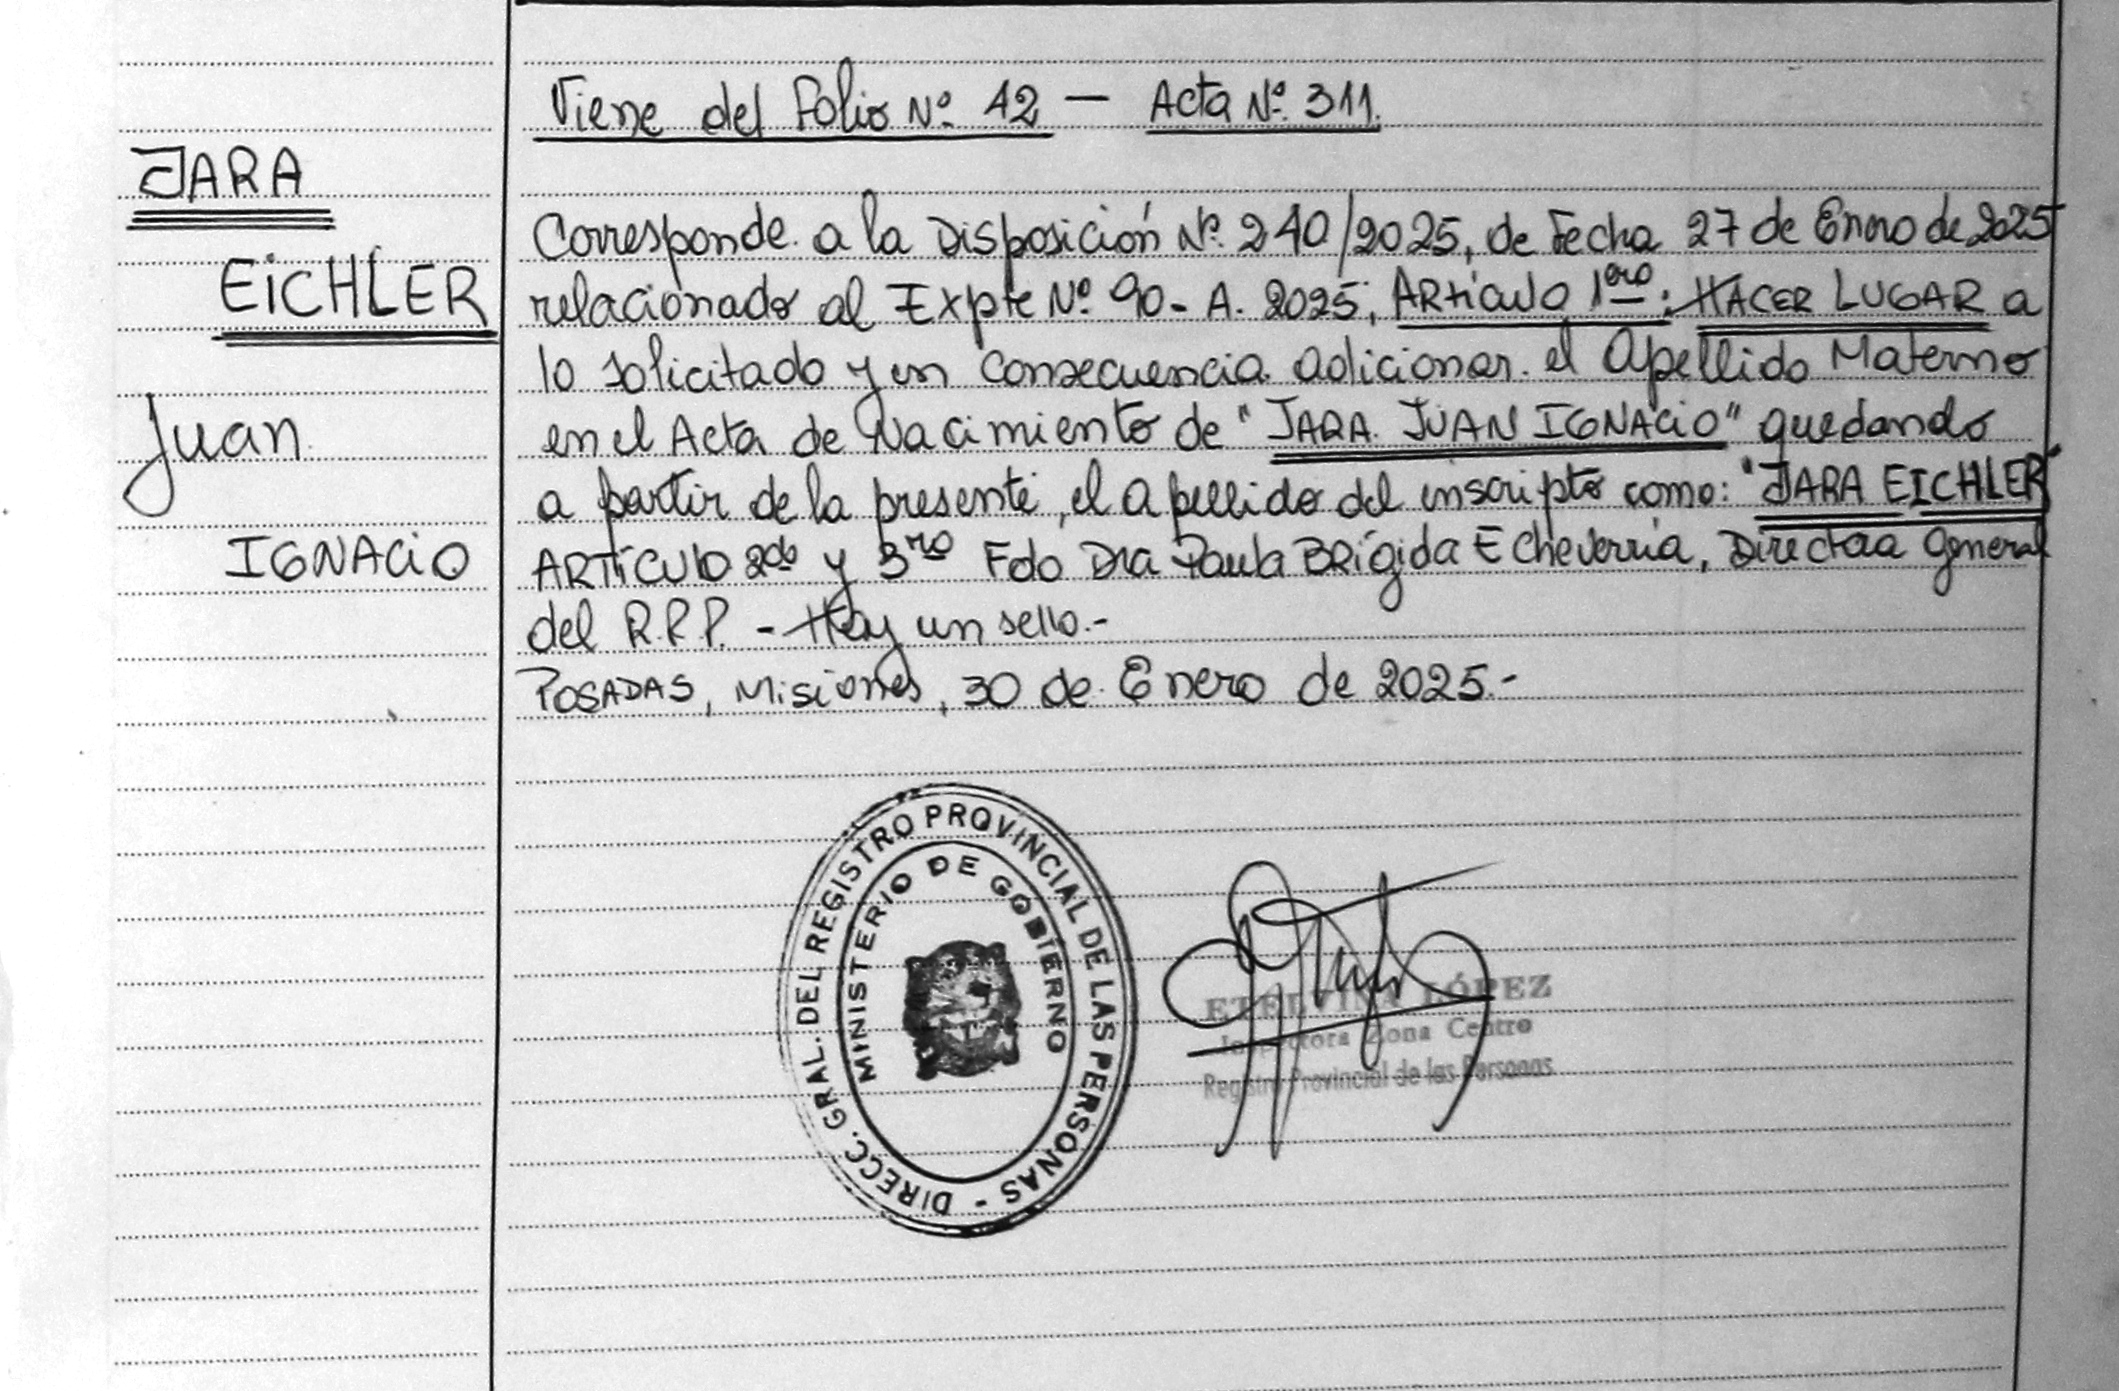 Viene del Folio Nº 42 — Acta Nº 311.
JARA
EICHLER
Juan
IGNACIO
Corresponde a la Disposición Nº 240/2025, de Fecha 27 de Enero de 2025
relacionado al Expte Nº 90-A. 2025; ARtículo 1ero: HACER LUGAR a
lo solicitado y en consecuencia adicionar el Apellido Materno
en el Acta de Nacimiento de "JARA JUAN IGNACIO" quedando
a partir de la presente, el apellido del inscripto como: "JARA EICHLER"
ARTÍCULO 2do y 3ro Fdo Dra Paula BRígida Echeverria, Directora General
del R.P.P. - Hay un sello.-
POSADAS, Misiones, 30 de Enero de 2025.-
DIRECC. GRAL. DEL REGISTRO PROVINCIAL DE LAS PERSONAS -
MINISTERIO DE GOBIERNO
ETELVINA LÓPEZ
Inspectora Zona Centro
Registro Provincial de las Personas